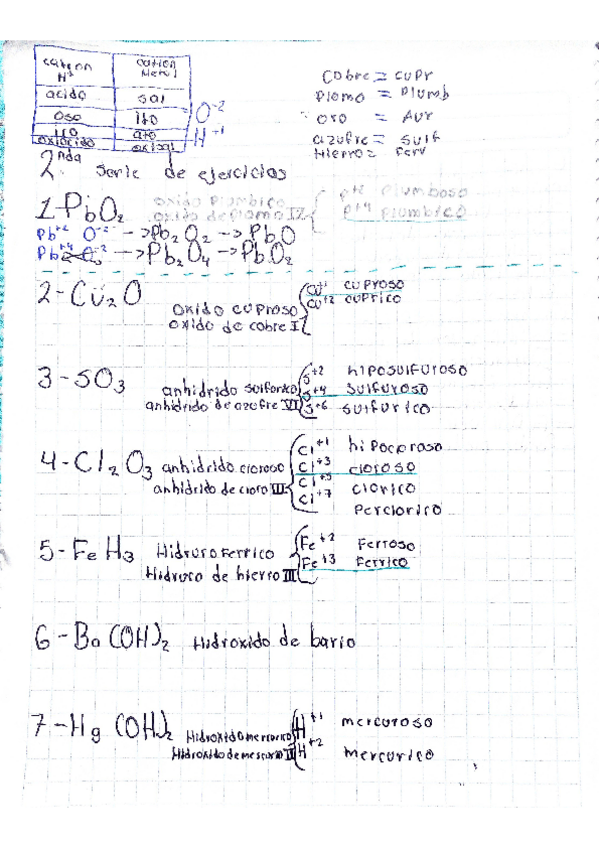 cation H⁺ cation Metal
acido sal
oso ito O⁻²
ico ato H⁺¹
oxiacido oxisal
cobre = cupr
Plomo = Plumb
oro = Aur
azufre = sulf
Hierro = Ferr
2nda serie de ejercicios
1-PbO₂ oxido Plumbico
oxido de Plomo IV
pb⁺² Plumboso
pb⁺⁴ plumbico
Pb⁺² O⁻² → Pb₂O₂ → PbO
Pb⁺⁴ O⁻² → Pb₂O₄ → PbO₂
2-Cu₂O oxido cuproso
oxido de cobre I
Cu⁺¹ cuproso
Cu⁺² cuprico
3-SO₃ anhidrido sulforico
anhidrido de azufre VI
S⁺² hiposulfuroso
S⁺⁴ sulfuroso
S⁺⁶ sulfurico
4-Cl₂O₃ anhidrido cloroso
anhidrido de cloro III
Cl⁺¹ hipocoroso
Cl⁺³ cloroso
Cl⁺⁵ clorico
Cl⁺⁷ Perclorico
5-FeH₃ Hidruro Ferrico
Hidruro de hierro III
Fe⁺² Ferroso
Fe⁺³ Ferrico
6-Ba(OH)₂ Hidroxido de bario
7-Hg(OH)₂ Hidroxido mercurico
Hidroxido de mercurio II
H⁺¹ mercuroso
H⁺² mercurico